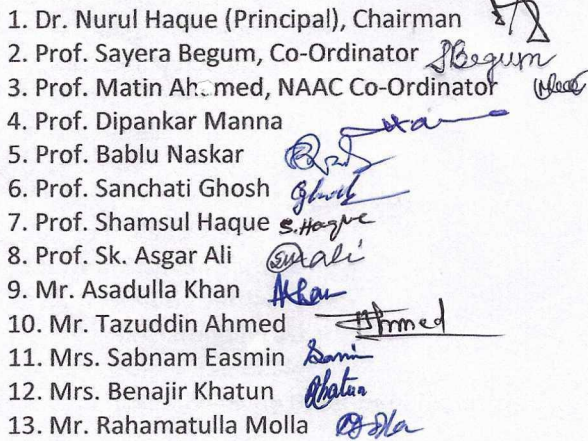 1. Dr. Nurul Haque (Principal), Chairman
2. Prof. Sayera Begum, Co-Ordinator SBegum
3. Prof. Matin Ahmed, NAAC Co-Ordinator
4. Prof. Dipankar Manna
5. Prof. Bablu Naskar
6. Prof. Sanchati Ghosh Ghosh
7. Prof. Shamsul Haque S. Haque
8. Prof. Sk. Asgar Ali SKAli
9. Mr. Asadulla Khan AKhan
10. Mr. Tazuddin Ahmed Ahmed
11. Mrs. Sabnam Easmin
12. Mrs. Benajir Khatun Khatun
13. Mr. Rahamatulla Molla